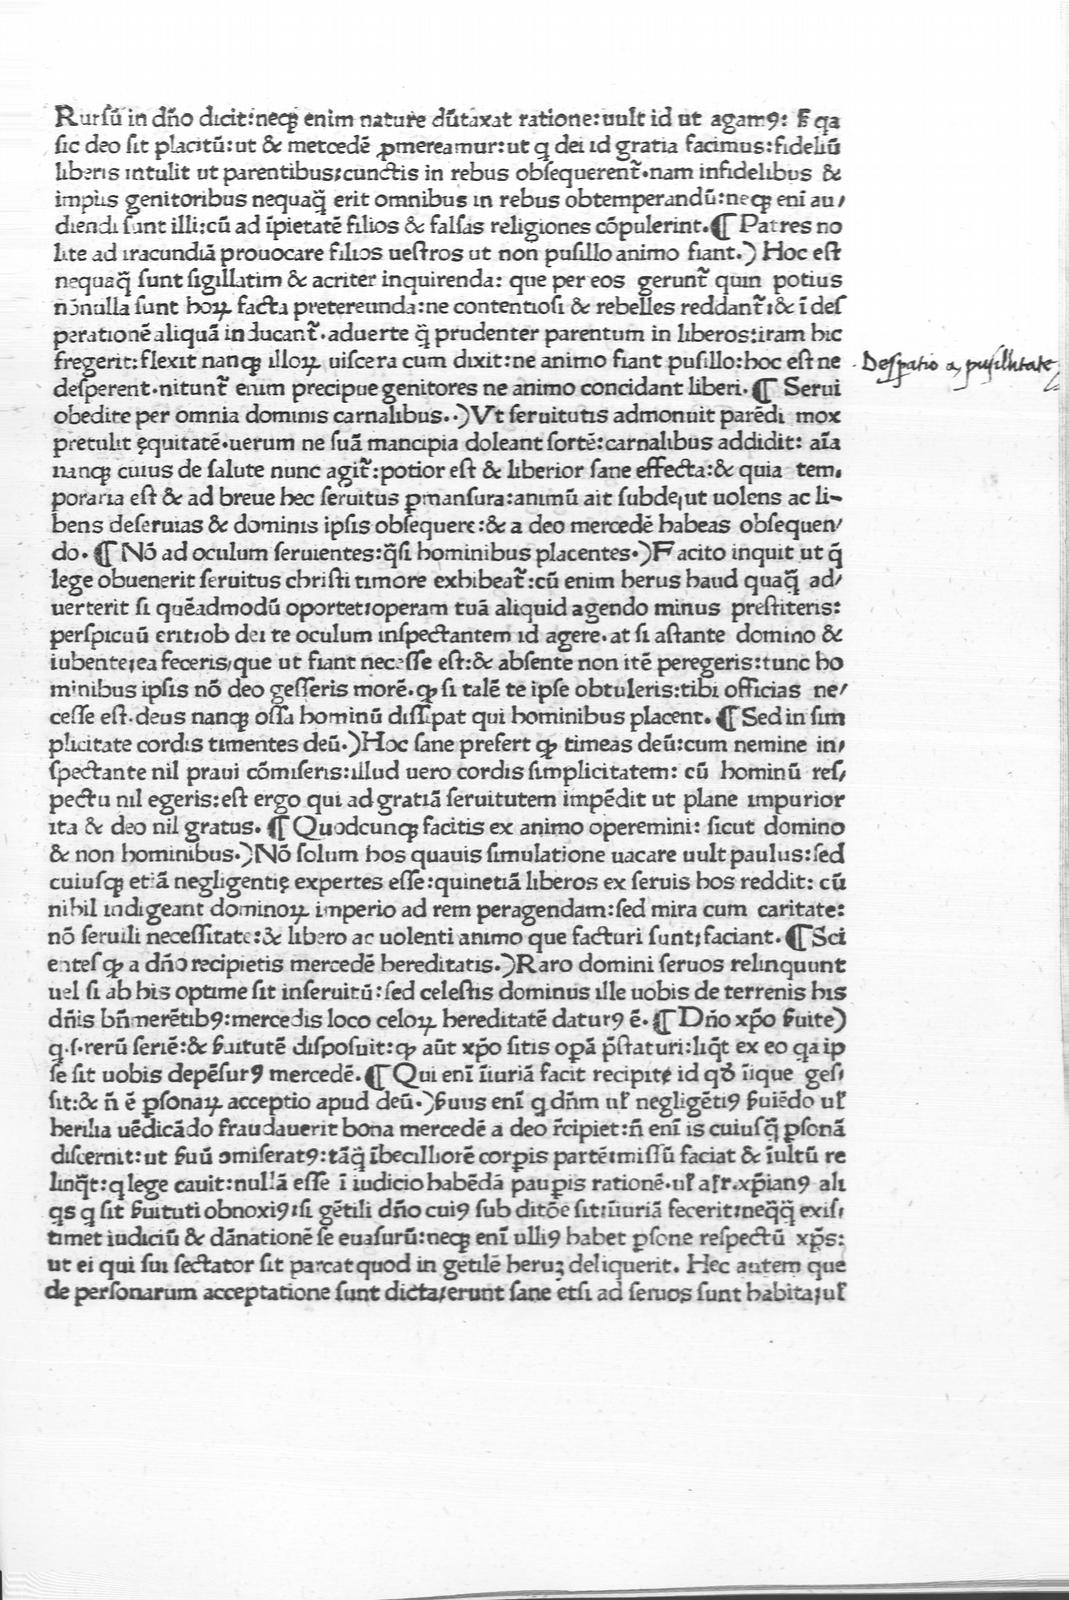 Rursū in dño dicit:neqꝫ enim nature dūtaxat ratione:uult id ut agamꝯ: ẜ qa
sic deo sit placitū:ut & mercedē ꝓmereamur:ut q dei id gratia facimus:fideliū
liberis intulit ut parentibus;cunctis in rebus obsequerent᷒.nam infidelibus &
impiis genitoribus nequaq̄ erit omnibus in rebus obtemperandū:neqꝫ enī au/
diendi sunt illi:cū ad īpietatē filios & falsas religiones cōpulerint.¶ Patres no
lite ad iracundiā prouocare filios uestros ut non pusillo animo fiant.) Hoc est
nequaq̄ sunt sigillatim & acriter inquirenda: que per eos gerunt᷒ quin potius
nōnulla sunt hoꝝ facta pretereunda:ne contentiosi & rebelles reddant᷒:& ī des
perationē aliquā inducant᷒.aduerte q̄ prudenter parentum in liberos:iram hic
fregerit:flexit nanqꝫ illoꝝ uiscera cum dixit:ne animo fiant pusillo:hoc est ne
desperent.nitunt᷒ enim precipue genitores ne animo concidant liberi.¶ Serui
obedite per omnia dominis carnalibus..)Vt seruitutis admonuit parēdi mox
pretulit ęquitatē.uerum ne suā mancipia doleant sortē:carnalibus addidit: aīa
nanqꝫ cuius de salute nunc agit᷒:potior est & liberior sane effecta:& quia tem/
poraria est & ad breue hec seruitus ꝑmansura:animū ait subde;ut uolens ac li-
bens deseruias & dominis ipsis obsequere:& a deo mercedē habeas obsequen/
do.¶ Nō ad oculum seruientes:q̄si hominibus placentes.)Facito inquit ut q̄
lege obuenerit seruitus christi timore exhibeat᷒:cū enim herus haud quaq̄ ad/
uerterit si quēadmodū oportet;operam tuā aliquid agendo minus prestiteris:
perspicuū erit;ob dei te oculum inspectantem id agere.at si astante domino &
iubente;ea feceris;que ut fiant necesse est:& absente non itē peregeris:tunc ho
minibus ipsis nō deo gesseris morē.qꝫ si talē te ipse obtuleris:tibi officias ne/
cesse est.deus nanqꝫ ossa hominū dissipat qui hominibus placent.¶ Sed in sim
plicitate cordis timentes deū.)Hoc sane prefert qꝫ timeas deū:cum nemine in/
spectante nil praui cōmiseris:illud uero cordis simplicitatem: cū hominū res/
pectu nil egeris:est ergo qui ad gratiā seruitutem impēdit ut plane impurior
ita & deo nil gratus.¶ Quodcunqꝫ facitis ex animo operemini: sicut domino
& non hominibus.)Nō solum hos quauis simulatione uacare uult paulus:sed
cuiusqꝫ etiā negligentię expertes esse:quinetiā liberos ex seruis hos reddit: cū
nihil indigeant dominoꝝ imperio ad rem peragendam:sed mira cum caritate:
nō seruili necessitate:& libero ac uolenti animo que facturi sunt;faciant.¶ Sci
entes qꝫ a dño recipietis mercedē hereditatis.)Raro domini seruos relinquunt
uel si ab his optime sit inseruitū:sed celestis dominus ille uobis de terrenis his
dñis bñmerētibꝯ:mercedis loco celoꝝ hereditatē daturꝯ ē.¶ Dño xp̄o ẜuite)
q.s.rerū seriē:& ẜuitutē disposuit:qꝫ aūt xp̄o sitis opā p̄staturi:liq̄t ex eo qa ip
se sit uobis depēsurꝯ mercedē.¶ Qui enī īiuriā facit recipite id qđ īique ges/
sit:& ñ ē ꝑsonaꝝ acceptio apud deū.)ẜuus enī q dñm uł negligētiꝯ ẜuiēdo uł
herilia uēdicādo fraudauerit bona mercedē a deo r̄cipiet:ñ enī is cuiusq̄ ꝑsonā
discernit:ut ẜuū ↄmiseratꝯ:tāq̄ ībecilliorē corꝑis partē;missū faciat & īultū re
linq̄t:q lege cauit:nullā esse ī iudicio habēdā pauꝑis rationē.uł aſr.xp̄ianꝯ ali
qs q sit ẜuituti obnoxiꝯ:si gētili dño cuiꝯ sub ditōe sit:īiuriā fecerit:neq̄q̄ exis/
timet iudiciū & dānationē se euasurū:neqꝫ enī ulliꝯ habet ꝑsone respectū xp̄s:
ut ei qui sui sectator sit parcat quod in gētilē heruꝫ deliquerit. Hec autem que
de personarum acceptatione sunt dicta;erunt sane etsi ad seruos sunt habita;uł
Despatio a pusillitate